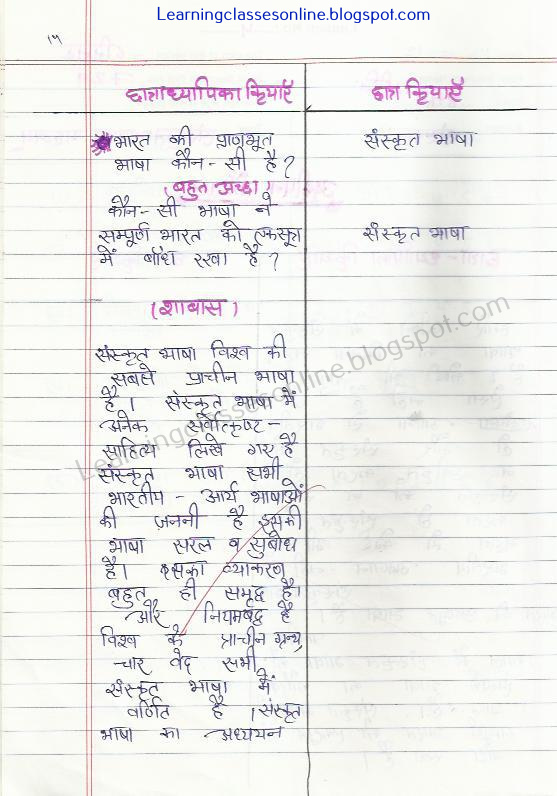 Learningclassesonline.blogspot.com
14
छात्राध्यापिका क्रियाएँ छात्र क्रियाएँ
भारत की प्राणभूत संस्कृत भाषा
भाषा कौन-सी है?
(बहुत अच्छा)
कौन-सी भाषा ने
सम्पूर्ण भारत को एकसूत्र संस्कृत भाषा
में बांध रखा है?
(शाबास)
संस्कृत भाषा विश्व की
सबसे प्राचीन भाषा
है। संस्कृत भाषा में
अनेक सर्वोत्कृष्ट-
साहित्य लिखे गए है
संस्कृत भाषा सभी
भारतीय - आर्य भाषाओं
की जननी है इसकी
भाषा सरल व सुबोध
है। इसका व्याकरण
बहुत ही समृद्ध है।
और नियमबद्ध है
विश्व के प्राचीन ग्रन्थ
चार वेद सभी
संस्कृत भाषा में
वर्णित है। संस्कृत
भाषा का अध्ययन
Learningclassesonline.blogspot.com